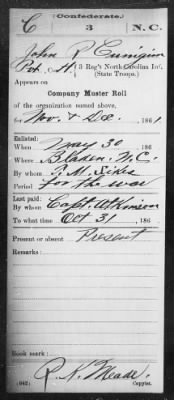 (Confederate.)
C 3 N.C.
John R Cunigim
Pvt, Co. H, 3 Reg't North Carolina Inf.
(State Troops.)
Appears on
Company Muster Roll
of the organization named above,
for Nov. & Dec. 1861
Enlisted:
When May 30 186
Where Bladen, N.C.
By whom T. M. Sikes
Period for the war
Last paid:
By whom Capt. Atkinson
To what time Oct 31 186
Present or absent Present
Remarks:
Book mark:
R. N. Meade
(642) Copyist.